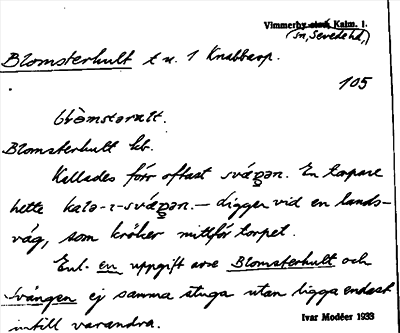 Vimmerby stad, Kalm. l.
(sn, Sevede hd,)
Blomsterhult t u. 1 Knabbarp.
105
Blomsterhult hb.
Kallades förr oftast sváŋən. En torpare
hette kalə-ı-sváŋən. — Ligger vid en lands-
väg, som kröker mittför torpet.
Enl. en uppgift äro Blomsterhult och
Svängen ej samma stuga utan ligga endast
intill varandra.
Ivar Modéer 1933